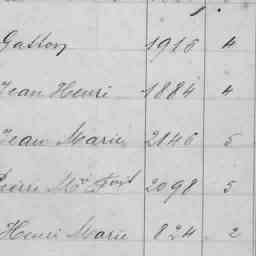 Gaston 1916 4
Jean Henri 1884 4
Jean Marie 2846 5
Pierre Mie 2098 5
Henri Marie 824 2